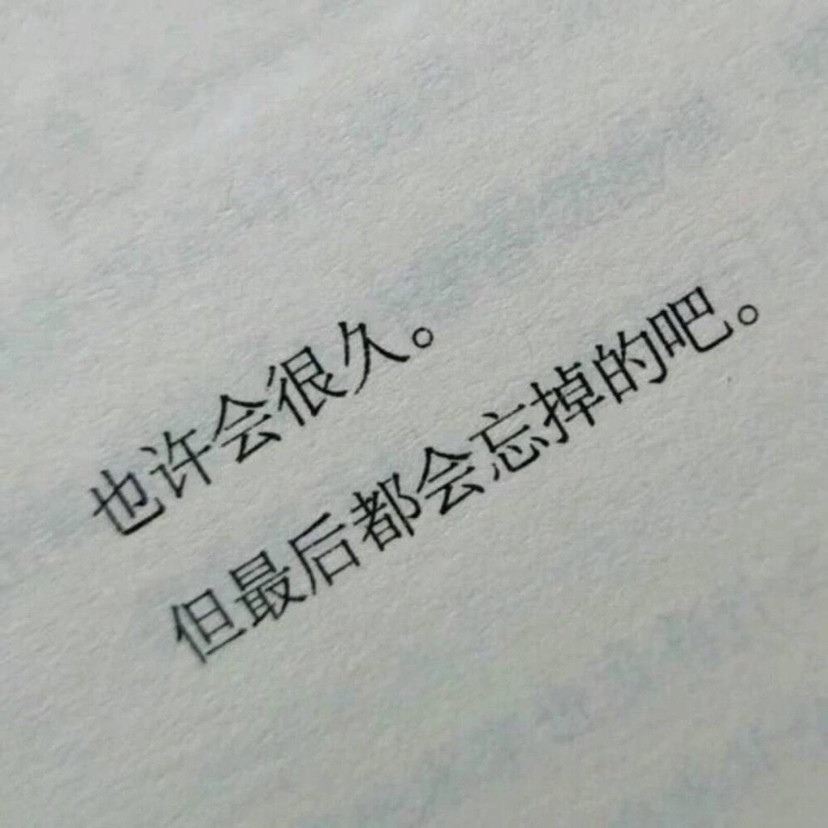 也许会很久。
但最后都会忘掉的吧。